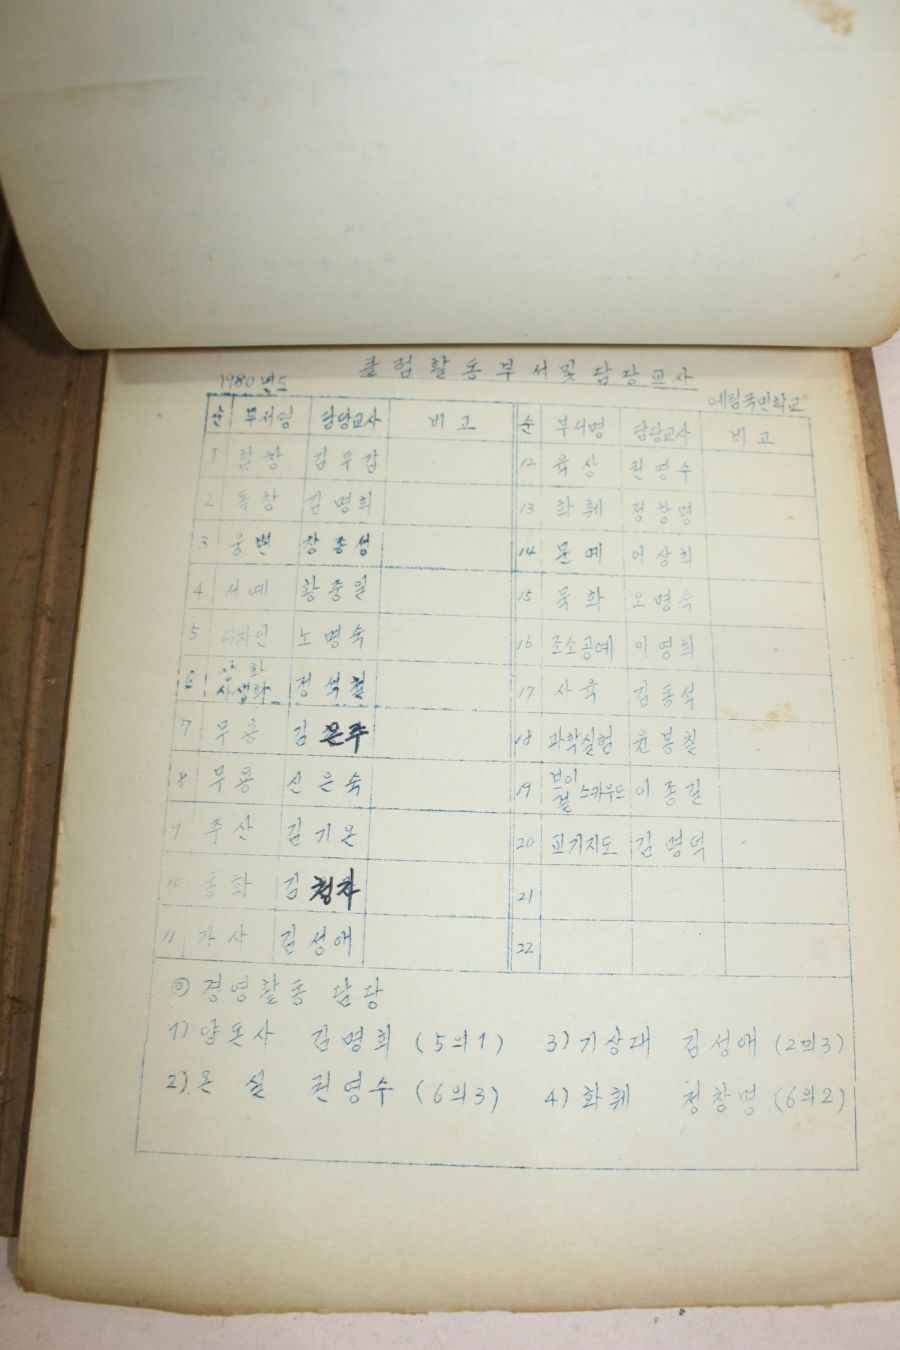 클럽활동부서및담당교사
1980년도
예림국민학교
순 부서명 담당교사 비고 순 부서명 담당교사 비고
1 합창 김우갑 12 육상 권영수
2 독창 김명희 13 화훼 정창명
3 웅변 장종성 14 문예 이상희
4 서예 황중일 15 묵화 오명숙
5 디자인 노명숙 16 조소공예 이영희
6 상화 사생화 정석철 17 사육 김동석
7 무용 김은주 18 과학실험 윤봉칠
8 무용 신은숙 19 보이 걸 스카우드 이종길
9 주산 김기운 20 교기지도 김명덕
10 동화 김청자 21
11 가사 김성애 22
◎ 경영활동 담당
1) 양돈사 김명희 (5의1) 3) 기상대 김성애 (2의3)
2) 온실 권영수 (6의3) 4) 화훼 정창명 (6의2)